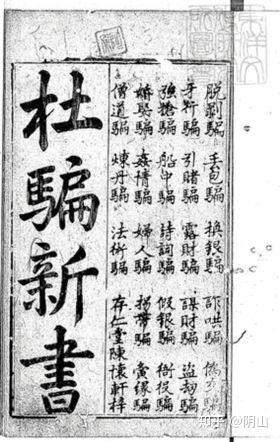 脫剝騙 丟包騙 換銀騙 詐哄騙 偽交騙
牙行騙 引賭騙 露財騙 謀財騙 盜劫騙
強搶騙 船中騙 詩詞騙 假銀騙 衙役騙
婚娶騙 姦情騙 婦人騙 拐帶騙 夤緣騙
僧道騙 煉丹騙 法術騙 存仁堂陳懷軒梓
杜騙新書
知乎 @阴山